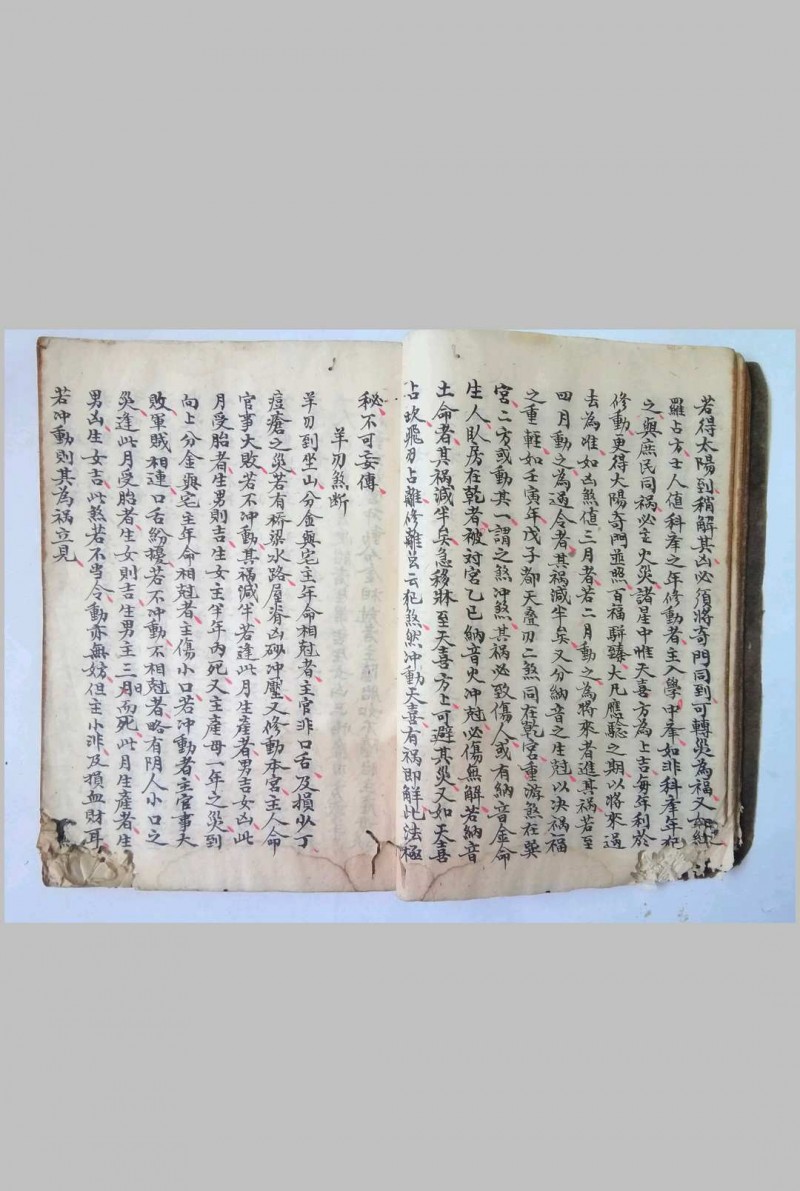 若得太陽到稍解其凶必須將奇門同到可轉災為福又如
羅占方士人值科牽之年修動者主入學中牽如非科牽年犯
之與庶民同禍必主火災諸星中惟天喜方為上吉每年利於
修動更得太陽奇門並照百福駢臻大凡應驗之期以將來過
去為唯如凶煞值三月者若二月動之為將來者進其祸若至
四月動之為過令者其祸減半矣又分納音之生尅以決祸福
之重輕如壬寅年戊子都天叠刃二煞同在乾宮重游煞在巽
宮二方或動其一謂之煞冲煞其祸必致傷人或有納音金命
生人臥房在乾者被对宮乙巳納音火冲尅必傷無解若納音
土命者其祸減半矣急移牀至天喜方上可避其災又如天喜
占坎飛刃占離修離宮云犯煞然冲動天喜有祸即解此法極
秘不可妄傳
羊刃煞断
羊刃到坐山分金與宅主年命相尅者主官非口舌及損少丁
痘瘡之災若有桥梁水路屋脊凶砂冲壓又修動本宮主人命
官事大敗若不冲動其祸減半若逢此月生產者男吉女凶此
月受胎者生男則吉生女主半年內死又主產母一年之災到
向上分金與宅主年命相尅者主傷小口若冲動者主官事大
敗軍賊相連口舌紛擾若不冲動不相尅者略有阴人小口之
災逢此月受胎者生女則吉生男主三月而死此月生產者生
男凶生女吉此煞若不当令動亦無妨但主小非及損血財耳
若冲動則其為祸立見